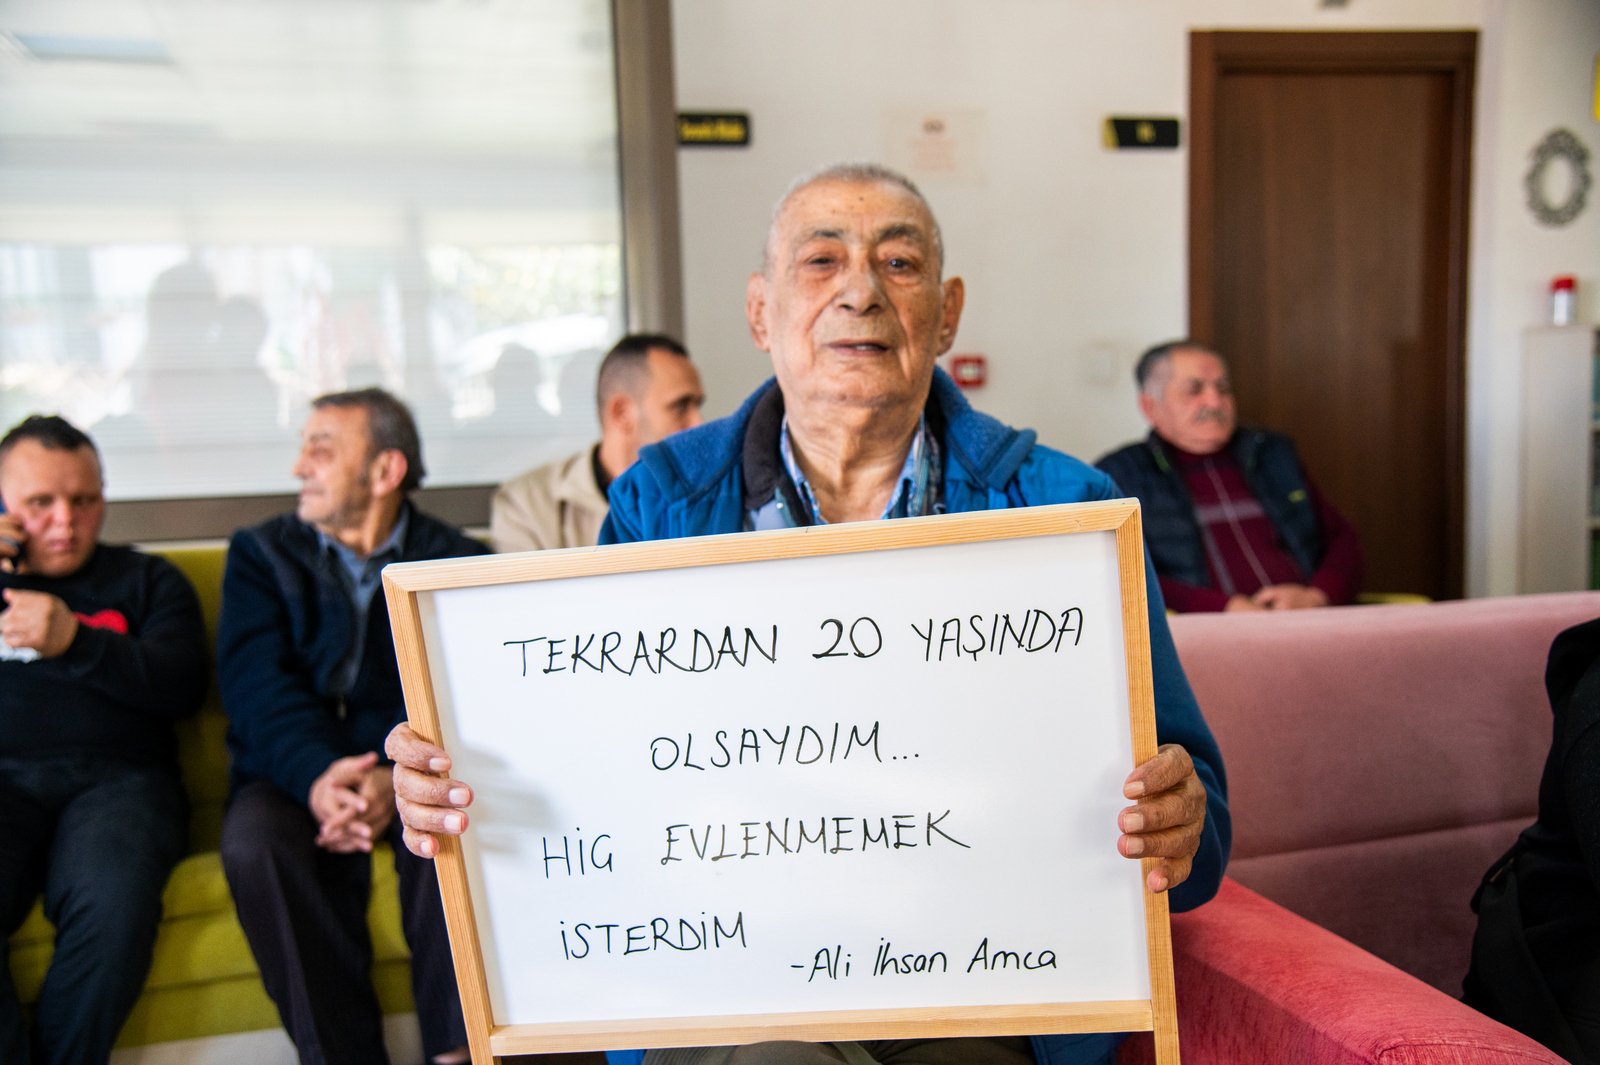 TEKRARDAN 20 YAŞINDA
OLSAYDIM...
HİG EVLENMEMEK
İSTERDİM
-Ali İhsan Amca